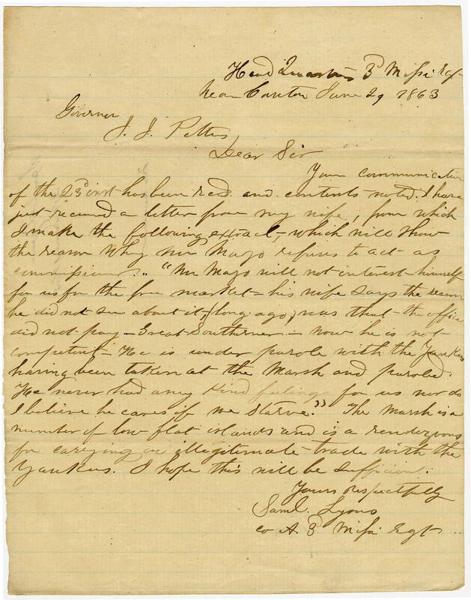 Head Quarters 3d Missi Regt
Near Canton June 29 1863
Governor
J. J. Pettus
Dear Sir
Your communication
of the 23d inst has been read and contents noted. I have
just received a letter from my wife, from which
I make the following extract, which will show
the reason why Mr Mayo refuses to act as
commissioner. "Mr Mayo will not interest himself
for us for the free market - his wife says the reason
he did not see about it, (long ago) was that the office
did not pay - Great Southerner - now he is not
competent - He is under parole with the Yankees
having been taken at the Marsh and paroled.
He never had any kind feeling for us nor do
I believe he cares if we starve." The Marsh is a
number of low flat islands and is a rendezvous
for carrying on illegitimate trade with the
Yankees. I hope this will be sufficient.
Yours respectfully
Saml. Lyons
Co A. 3d Missi Regt